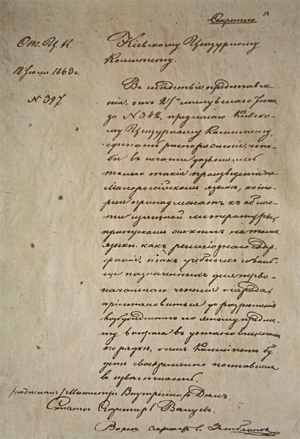 Секретно
От М. В. Д.
Кіевскому Цензурному
Комитету.
18 Іюля 1863 г.
№ 397
Въ слѣдствіе представле-
нія, отъ 27 минувшаго Іюня
за № 342, предлагаю Кіевско-
му Цензурному Комитету,
сдѣлать распоряженіе, что-
бы къ печати дозволялись
только такія произведенія на
Малороссійскомъ языкѣ, кото-
рыя принадлежатъ къ обла-
сти изящной литературы;
пропускомъ же книгъ на томъ
языкѣ какъ религіознаго содер-
жанія, такъ учебныхъ и вооб-
ще назначаемыхъ для перво-
начальнаго чтенія народа,
пріостановиться до разрѣшенія
возбужденнаго по этому предме-
ту вопроса въ установленномъ
порядкѣ, о чемъ Комитетъ бу-
детъ своевременно поставленъ
въ извѣстность.
подписалъ: Министръ Внутреннихъ Дѣлъ,
Статсъ-Секретарь Валуевъ.